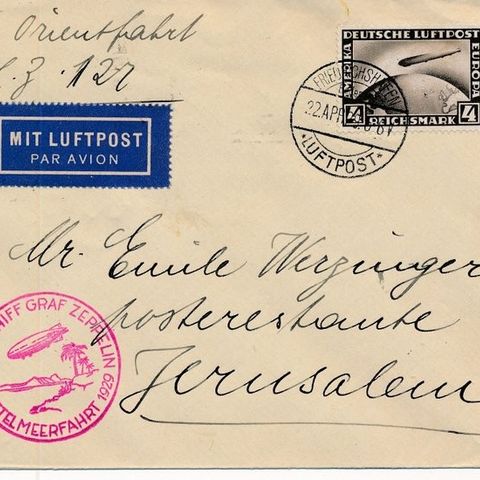 Orientfahrt
L.Z. 127
MIT LUFTPOST
PAR AVION
DEUTSCHE LUFTPOST
AMERIKA
EUROPA
4 4
REICHSMARK
FRIEDRICHSHAFEN
22.APR
LUFTPOST
Mr. Emile Werzinger
posterestante
Jerusalem
HIFF GRAF ZEPPELIN
TELMEERFAHRT 1929